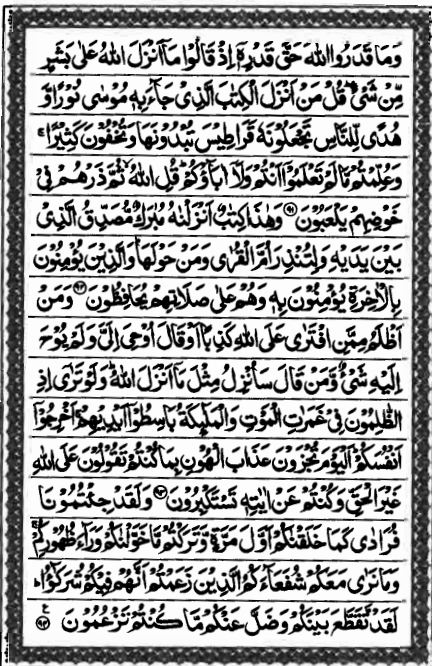 وَمَا قَدَرُوا اللّٰهَ حَقَّ قَدْرِهٖٓ اِذْ قَالُوْا مَآ اَنْزَلَ اللّٰهُ عَلٰى بَشَرٍ
مِّنْ شَيْءٍ ؕ قُلْ مَنْ اَنْزَلَ الْكِتٰبَ الَّذِيْ جَآءَ بِهٖ مُوْسٰى نُوْرًا وَّ
هُدًى لِّلنَّاسِ تَجْعَلُوْنَهٗ قَرَاطِيْسَ تُبْدُوْنَهَا وَتُخْفُوْنَ كَثِيْرًا ۚ
وَعُلِّمْتُمْ مَّا لَمْ تَعْلَمُوْٓا اَنْتُمْ وَلَآ اٰبَآؤُكُمْ ؕ قُلِ اللّٰهُ ۙ ثُمَّ ذَرْهُمْ فِيْ
خَوْضِهِمْ يَلْعَبُوْنَ ﴿۹۱﴾ وَهٰذَا كِتٰبٌ اَنْزَلْنٰهُ مُبٰرَكٌ مُّصَدِّقُ الَّذِيْ
بَيْنَ يَدَيْهِ وَلِتُنْذِرَ اُمَّ الْقُرٰى وَمَنْ حَوْلَهَا ؕ وَالَّذِيْنَ يُؤْمِنُوْنَ
بِالْاٰخِرَةِ يُؤْمِنُوْنَ بِهٖ وَهُمْ عَلٰى صَلَاتِهِمْ يُحَافِظُوْنَ ﴿۹۲﴾ وَمَنْ
اَظْلَمُ مِمَّنِ افْتَرٰى عَلَى اللّٰهِ كَذِبًا اَوْ قَالَ اُوْحِيَ اِلَيَّ وَلَمْ يُوْحَ
اِلَيْهِ شَيْءٌ وَّمَنْ قَالَ سَاُنْزِلُ مِثْلَ مَآ اَنْزَلَ اللّٰهُ ؕ وَلَوْ تَرٰٓى اِذِ
الظّٰلِمُوْنَ فِيْ غَمَرٰتِ الْمَوْتِ وَالْمَلٰٓئِكَةُ بَاسِطُوْٓا اَيْدِيْهِمْ ۚ اَخْرِجُوْٓا
اَنْفُسَكُمْ ؕ اَلْيَوْمَ تُجْزَوْنَ عَذَابَ الْهُوْنِ بِمَا كُنْتُمْ تَقُوْلُوْنَ عَلَى اللّٰهِ
غَيْرَ الْحَقِّ وَكُنْتُمْ عَنْ اٰيٰتِهٖ تَسْتَكْبِرُوْنَ ﴿۹۳﴾ وَلَقَدْ جِئْتُمُوْنَا
فُرَادٰى كَمَا خَلَقْنٰكُمْ اَوَّلَ مَرَّةٍ وَّتَرَكْتُمْ مَّا خَوَّلْنٰكُمْ وَرَآءَ ظُهُوْرِكُمْ ۚ
وَمَا نَرٰى مَعَكُمْ شُفَعَآءَكُمُ الَّذِيْنَ زَعَمْتُمْ اَنَّهُمْ فِيْكُمْ شُرَكٰٓؤُا ؕ
لَقَدْ تَّقَطَّعَ بَيْنَكُمْ وَضَلَّ عَنْكُمْ مَّا كُنْتُمْ تَزْعُمُوْنَ ﴿۹۴﴾ ع